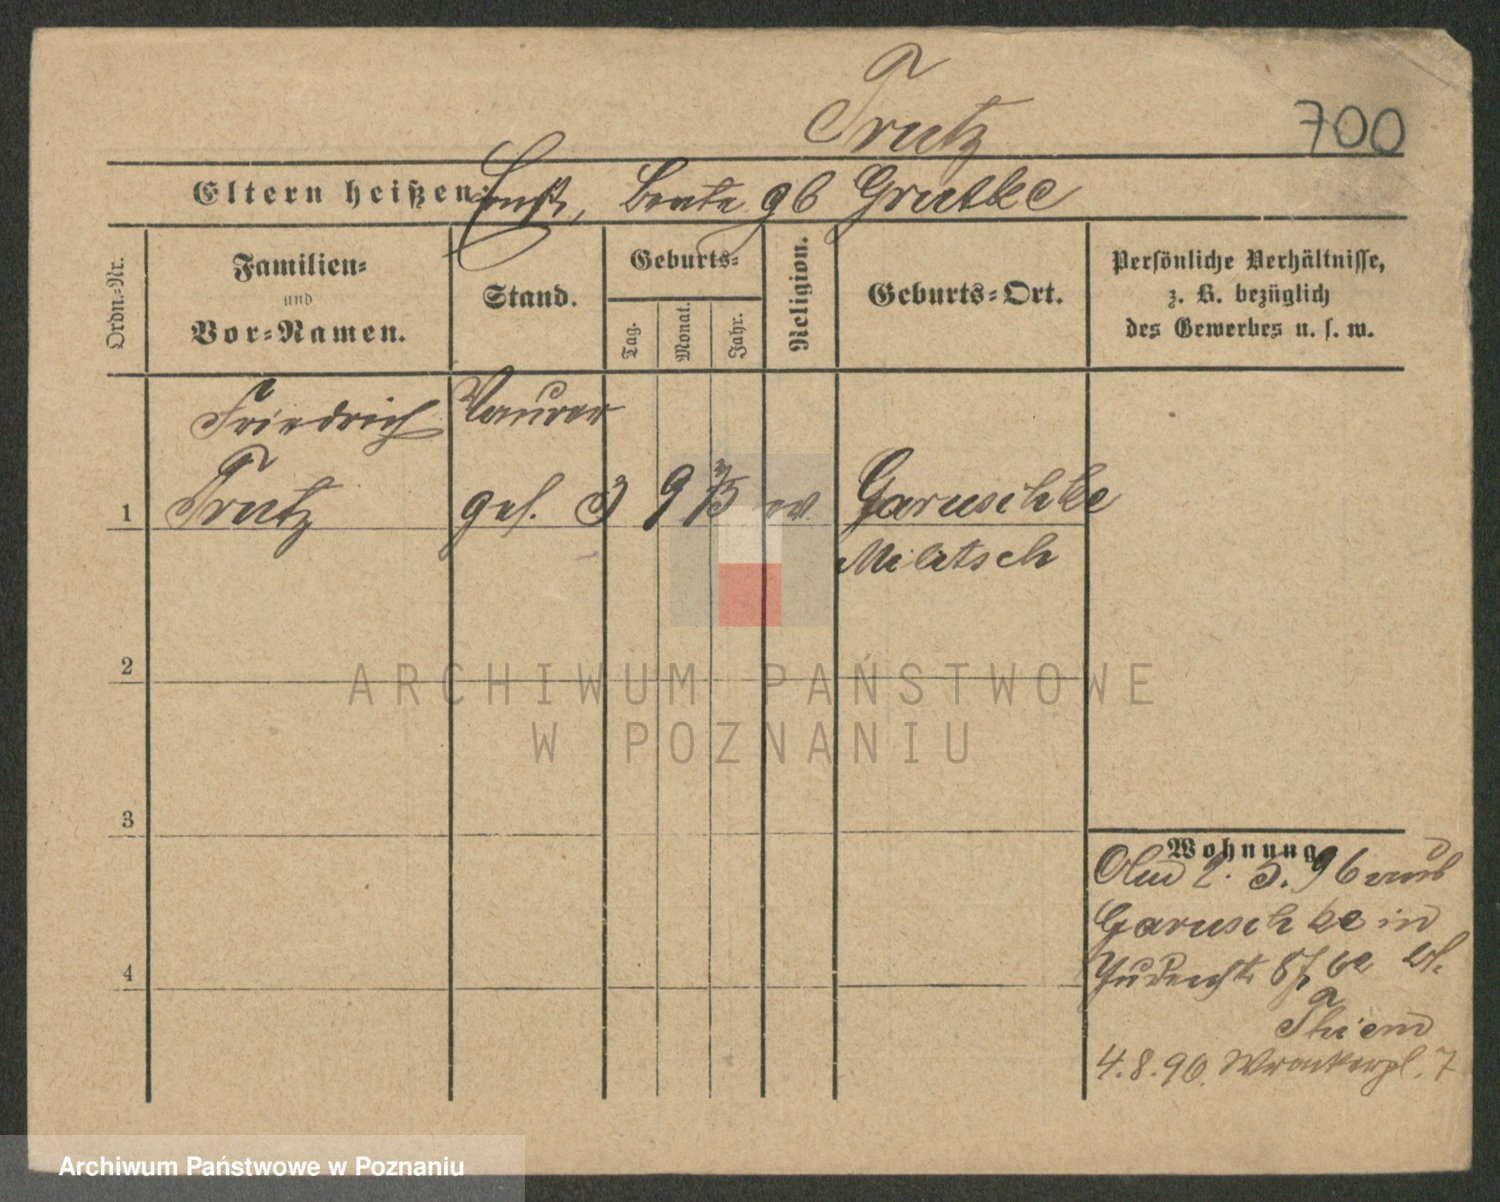 Trutz
700
Eltern heißen: Ernst, Beate gb Grutke
Ordn.-Nr.
Familien-
und
Vor-Namen.
Stand.
Geburts-
Tag.
Monat.
Jahr.
Religion.
Geburts-Ort.
Persönliche Verhältnisse,
z. B. bezüglich
des Gewerbes u. s. w.
Friedrich Maurer
1 Trutz ges. 3 9 75 ev. Garuschke
Militsch
2
3
4
Wohnung
2. 5. 96 aus
Garuschke in
Thiem
4.8.96. 7
ARCHIWUM PAŃSTWOWE
W POZNANIU
Archiwum Państwowe w Poznaniu